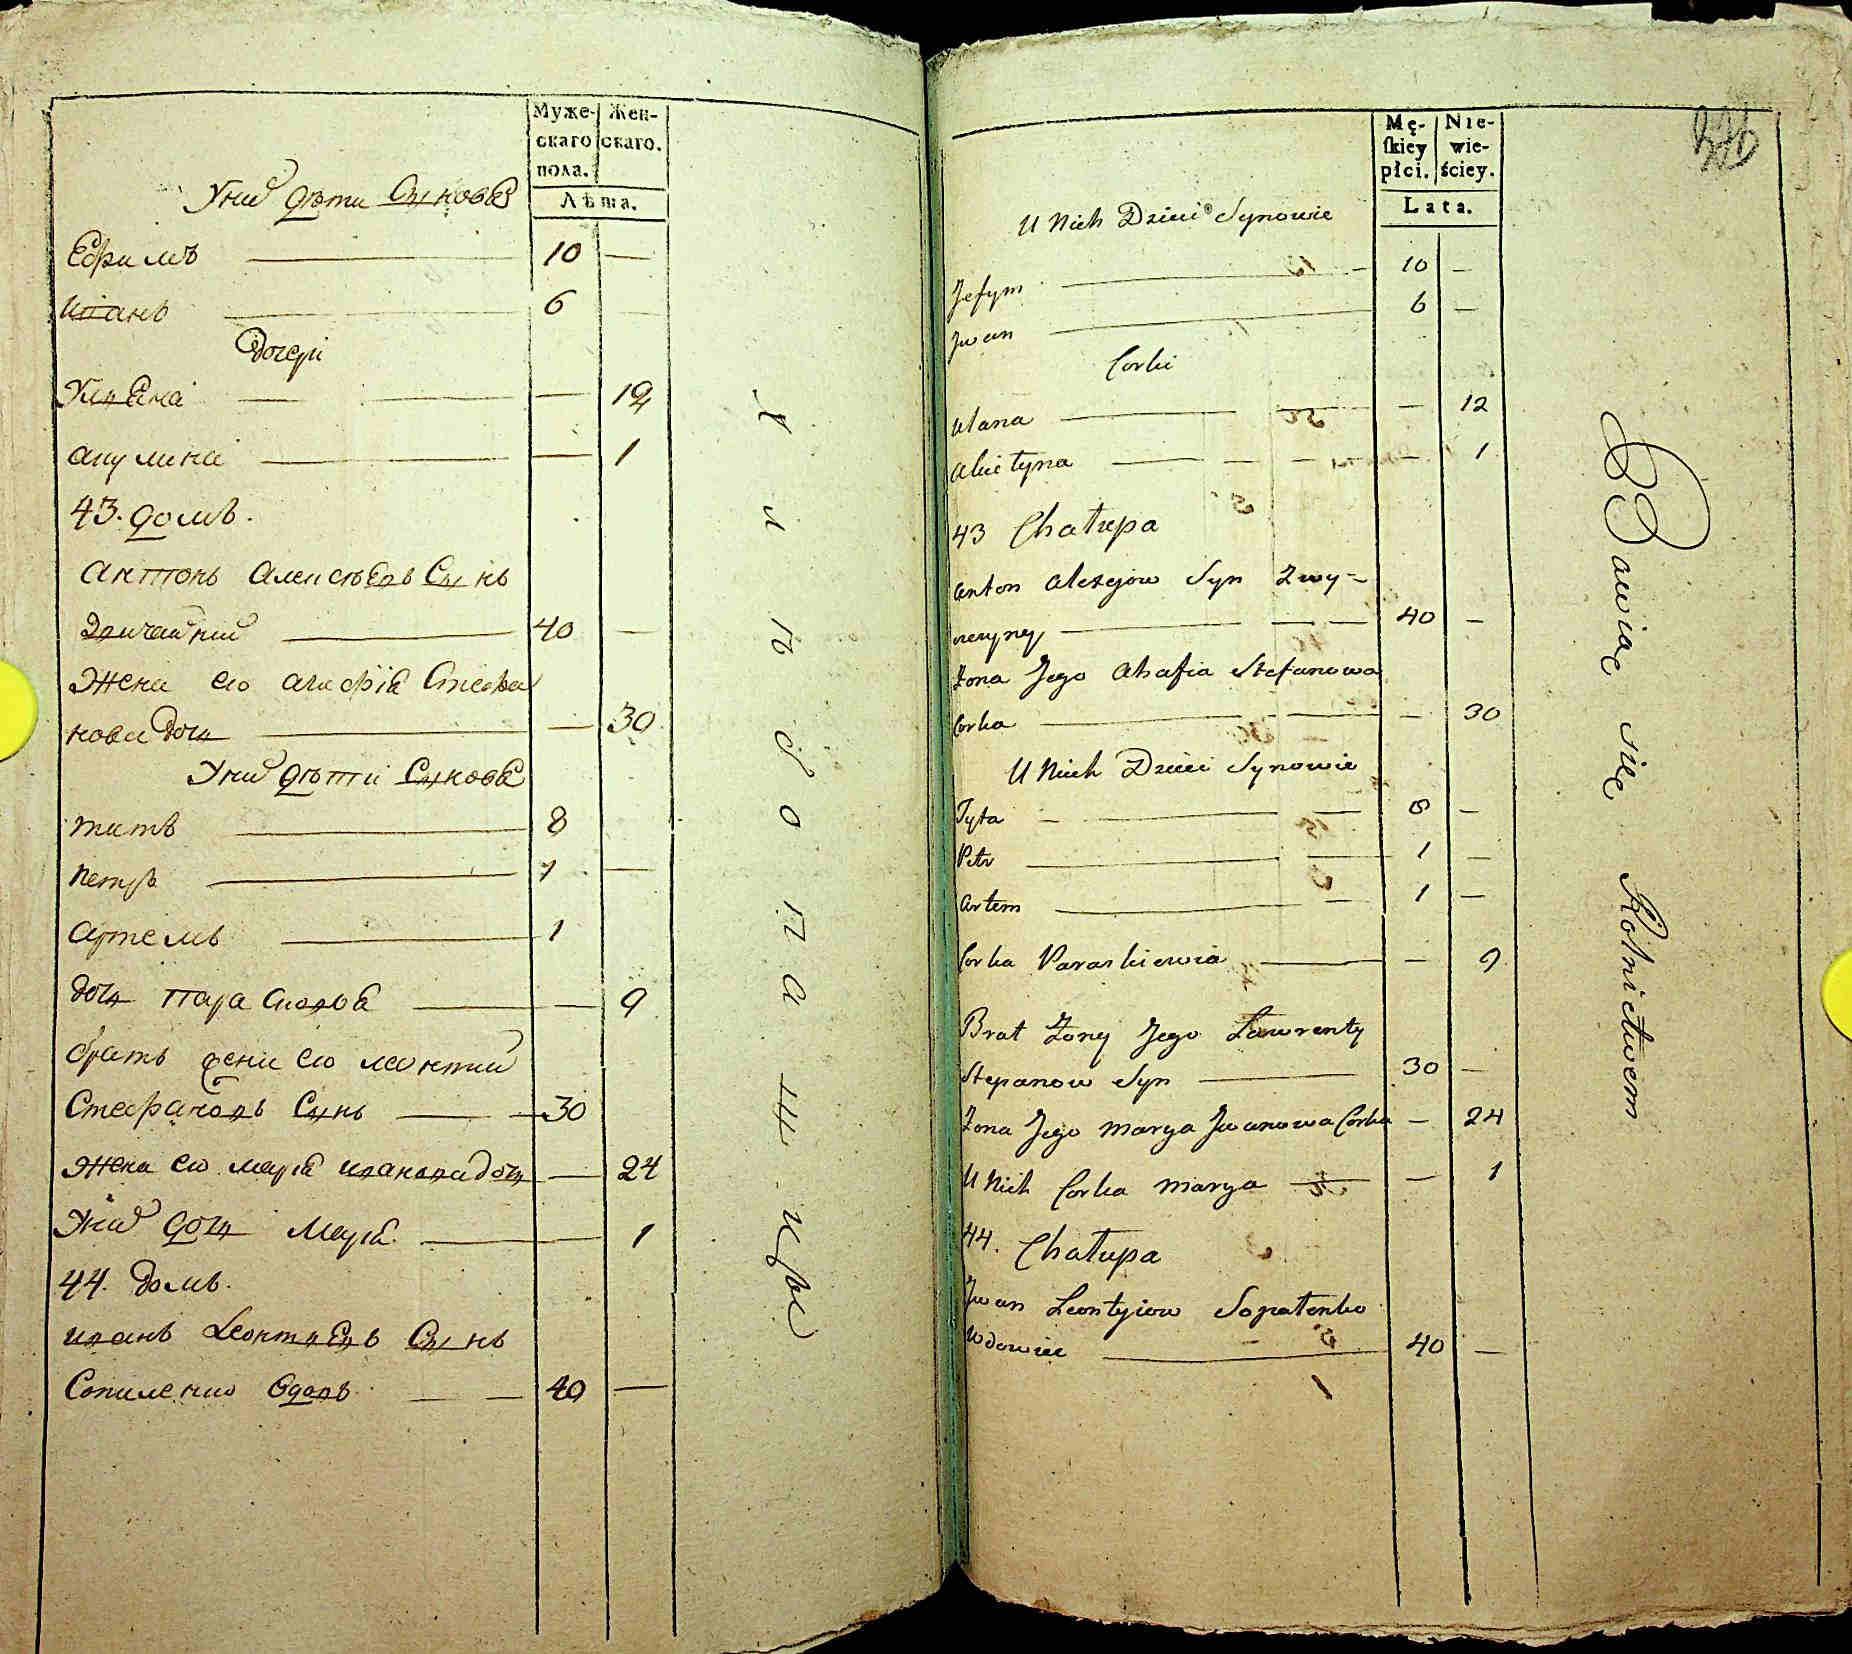 Муже-
скаго
пола.
Жен-
скаго.
Лѣта.
У них дѣти Сыновья
Ефимъ 10 —
Иванъ 6 —
Дочери
Ульяна — 12
Акулина — 1
43. домъ.
Антонъ Алексѣевъ Сынъ
Звичайний 40 —
Жена его Агафія Стефа
нова дочь — 30
У них дѣти Сыновья
титъ 8
петръ 1 —
Артемъ 1
дочь Парасковья — 9
братъ жены его
Стефановъ Сынъ — 30
Жена его Марья Иванова дочь — 24
У них дочь Марья 1
44. домъ.
Иванъ Леонтьевъ Сынъ
Вдовъ 40 —
Хлѣбопашцы
Mę-
skiey
płci.
Nie-
wie-
ściey.
Lata.
U Nich Dzieci Synowie
Jefym 10 —
Jwan 6 —
Corki
Ulana — 12
Akietyna — 1
43 Chałupa
Anton Alexejow Syn Zwy-
czayny 40 —
Zona Jego Ahafia Stefanowa
Corka — 30
U Nich Dzieci Synowie
Tyta 8 —
Petr 1 —
Artem 1 —
Corka Paraskiewia — 9
Brat Zony Jego Lawrenty
Stepanow Syn 30 —
Zona Jego Marya Jwanowa Corka — 24
U Nich Corka Marya — 1
44. Chałupa
Jwan Leontyiow Sopałenko
Wdowiec 40 —
Bawiąc się Rolnictwem